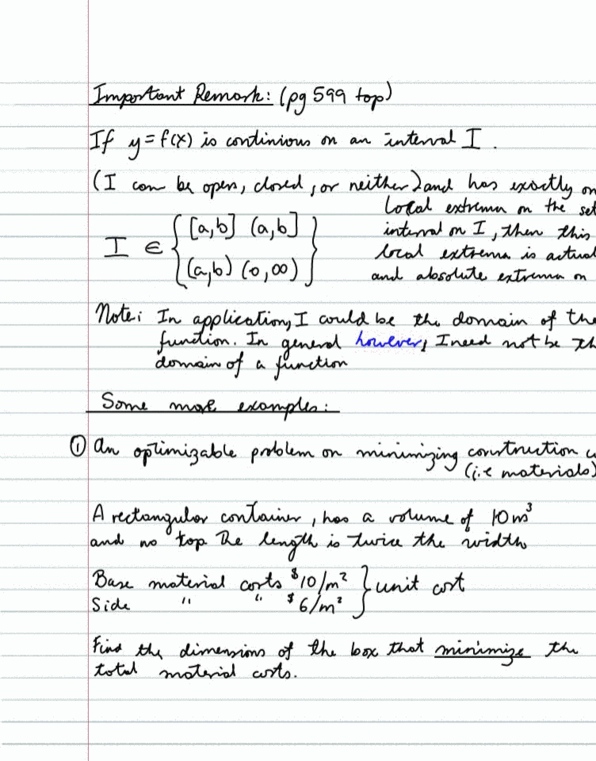 Important Remark: (pg 599 top)
If y = f(x) is continious on an interval I.
(I can be open, closed, or neither) and has exactly on
local extrema on the set
I ∈ { [a,b] (a,b] (a,b) (0,∞) } interval on I, then this
local extrema is actual
and absolute extrema on
Note: In application, I could be the domain of the
function. In general however, I need not be th
domain of a function
Some more examples:
① An optimizable problem on minimizing construction c
(i.e materials)
A rectangular container, has a volume of 10 m³
and no top The length is twice the width
Base material costs $10/m² } unit cost
Side " " $6/m²
Find the dimensions of the box that minimize the
total material costs.